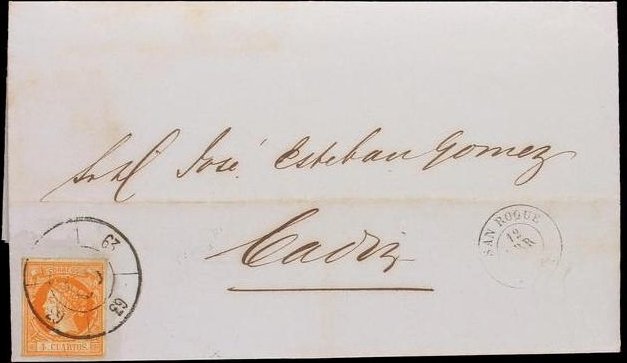 José Esteban Gomez
Cadiz
SAN ROQUE
12
63
63
63
4 CUARTOS